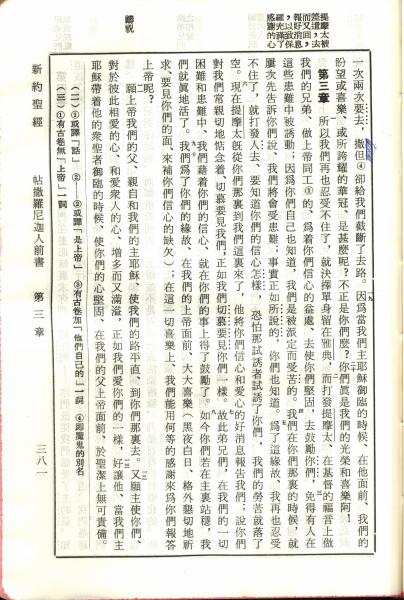 提摩太被
差遣，去
而又回，
報好消息
，以致保
羅充滿了
感謝的心
一次兩次要去，撒但④卻給我們截斷了去路。因爲當我們主耶穌御臨的時候、在他面前、我們的
盼望或喜樂、或所誇耀的華冠、是甚麼呢？不正是你們麼？你們眞是我們的光榮和喜樂阿！
第三章　所以我們再也忍受不住了，就決擇單身留在雅典，而打發提摩太、在基督的福音上做
我們的兄弟、做上帝同工①的、爲着你們信心的益處、去使你們堅固，去鼓勵你們，免得有人在
這些患難中被誘動；因爲你們自己也知道，我們是被派定而受苦的。我們在你們那裏的時候，就
屢次先吿訴你們說、我們將會受患難；事實正如所說的，你們也知道。爲了這緣故、我再也忍受
不住了，就打發人去、要知道你們的信心怎樣，恐怕那試誘者試誘了你們，我們的勞苦就落了
空。現在提摩太旣從你們那裏到我們這裏來了，他將你們信心和愛心的好消息報吿我們；說你們
對我們常親切地惦念着、切慕要見我們，正如我們切慕要見你們一樣。故此弟兄們，在我們的一切
困難和患難中、我們藉着你們的信心、就在你們的事上得了鼓勵了。如今你們若在主裏站穩，我
們就眞地活了。我們爲了你們的緣故、在我們的上帝面前、大大喜樂（黑夜白日、格外懇切地祈
求、要見你們的面、來補你們信心的缺欠）；在這一切喜樂上、我們能用何等的感謝來爲你們報答
上帝呢？
總祝
願上帝我們的父、親自和我們的主耶穌、使我們的路平直、到你們那裏去。又願主使你們、
對於彼此相愛的心、和愛衆人的心、增多而又滿溢，正如我們愛你們的一樣，好讓他、當我們主
耶穌帶着他的衆聖者御臨的時候、使你們的心堅固、在我們的父上帝面前、於聖潔上無可責備。
（二）①或譯『話』　②　③或譯『是上帝』　③有古卷加『他們自己的』一詞　④卽魔鬼的別名
（三）①有古卷無『上帝』一詞
新約聖經　帖撒羅尼迦人前書　第三章　三八一